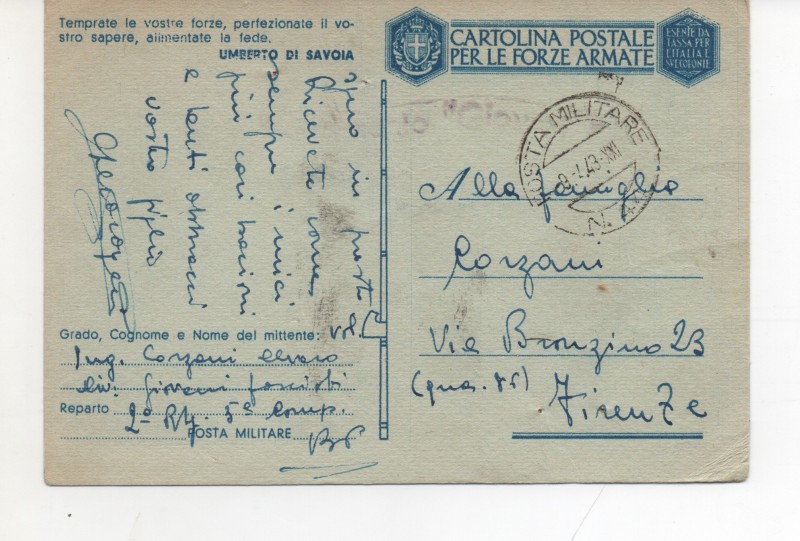 Temprate le vostre forze, perfezionate il vo-
stro sapere, alimentate la fede.
UMBERTO DI SAVOIA
CARTOLINA POSTALE
PER LE FORZE ARMATE
ESENTE DA
TASSA PER
L'ITALIA E
POSTA MILITARE
43-XXI
N.
in posto
Ricevete come
sempre i miei
più cari bacioni
e tanti abbracci
vostro figlio
Alla famiglia
Corzani
Via Bronzino 23
Firenze
Grado, Cognome e Nome del mittente: Vol.
Ing. Corzani Alvaro
Div. Giovani fascisti
Reparto 2º Rtg. 5ª Comp.
POSTA MILITARE